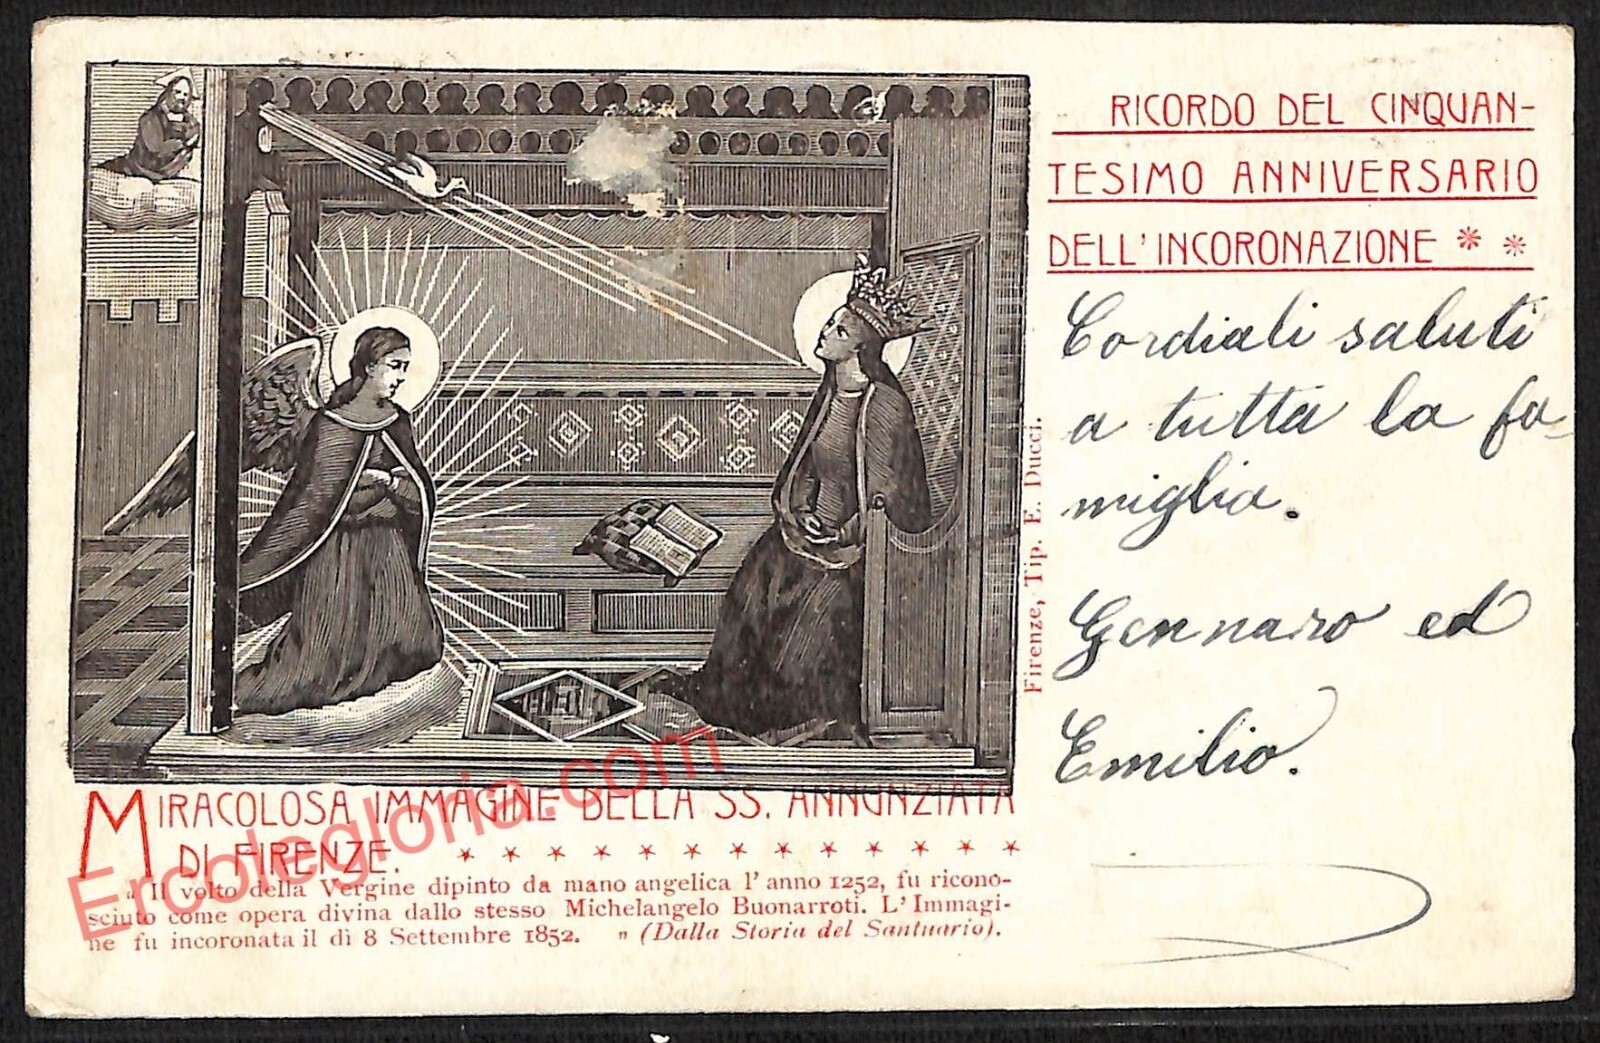 RICORDO DEL CINQUAN-
TESIMO ANNIVERSARIO
DELL'INCORONAZIONE * *
Cordiali saluti
a tutta la fa-
miglia.
Gennaro ed
Emilio.
Firenze, Tip. E. Ducci.
MIRACOLOSA IMMAGINE DELLA SS. ANNUNZIATA
DI FIRENZE. * * * * * * * * * * * * *
„ Il volto della Vergine dipinto da mano angelica l'anno 1252, fu ricono-
sciuto come opera divina dallo stesso Michelangelo Buonarroti. L'Immagi-
ne fu incoronata il dì 8 Settembre 1852. „ (Dalla Storia del Santuario).
Ercolegloria.com